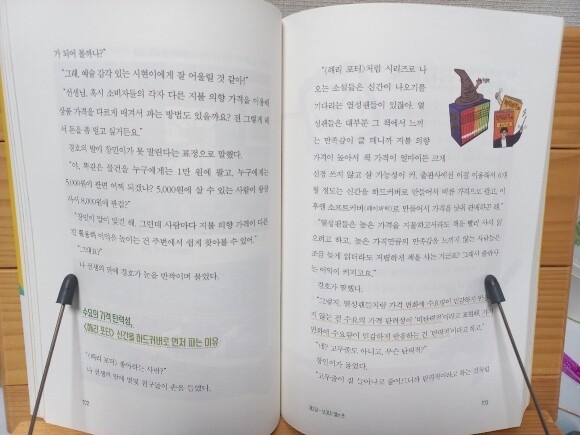 가 되어 볼까나?"
"그래, 예술 감각 있는 시현이에게 잘 어울릴 것 같아!"
"선생님, 혹시 소비자들의 각자 다른 지불 의향 가격을 이용해
상품 가격을 다르게 매겨서 파는 방법도 있을까요? 전 그렇게 해
서 돈을 좀 벌고 싶거든요."
경호의 말에 창민이가 못 말린다는 표정으로 말했다.
"야, 똑같은 물건을 누구에게는 1만 원에 팔고, 누구에게는
5,000원에 팔면 어찌 되겠냐? 5,000원에 살 수 있는 사람이
8,000원에 판걸?"
"창민이 말이 맞긴 해. 그런데 사람마다 지불 의향 가격이 다른
걸 활용해 이익을 높이는 건 주변에서 쉽게 찾아볼 수 있어."
"그래요?"
나 선생의 말에 경호가 눈을 반짝이며 물었다.
수요의 가격 탄력성,
《해리 포터》 신간을 하드커버로 먼저 파는 이유
"《해리 포터》 좋아하는 사람?"
나 선생의 말에 몇몇 친구들이 손을 들었다.
172
"《해리 포터》처럼 시리즈로 나
오는 소설들은 신간이 나오기를
기다리는 열성팬들이 있잖아. 열
성팬들은 대부분 그 책에서 느끼
는 만족감이 클 테니까 지불 의향
가격이 높아서 책 가격이 얼마이든 크게
신경 쓰지 않고 살 가능성이 커. 출판사에선 이걸 이용해서
정도는 신간을 하드커버로 만들어서 비싼 가격으로 팔고, 이
후엔 소프트커버(페이퍼백)로 만들어서 가격을 낮춰 판매하곤 해."
"열성팬들은 높은 가격을 지불하고서라도 책을 빨리 사서 읽
으려고 하고, 높은 가격만큼의 만족감을 느끼지 않는 사람들은
조금 늦게 읽더라도 저렴하게 책을 사는 거군요! 그래서 출판사
는 이익이 커지고요."
경호가 말했다.
"그렇지. 열성팬들처럼 가격 변화에 수요량이 민감하지
않는 걸 수요의 가격 탄력성이 '비탄력적'이라고 표현해.
변화에 수요량이 민감하게 반응하는 건 '탄력적'이라고 하고."
"네? 고무줄도 아니고, 무슨 탄력적?"
창민이가 물었다.
"고무줄이 잘 늘어나고 줄어드니까 탄력적이라고 하는 것처럼
173